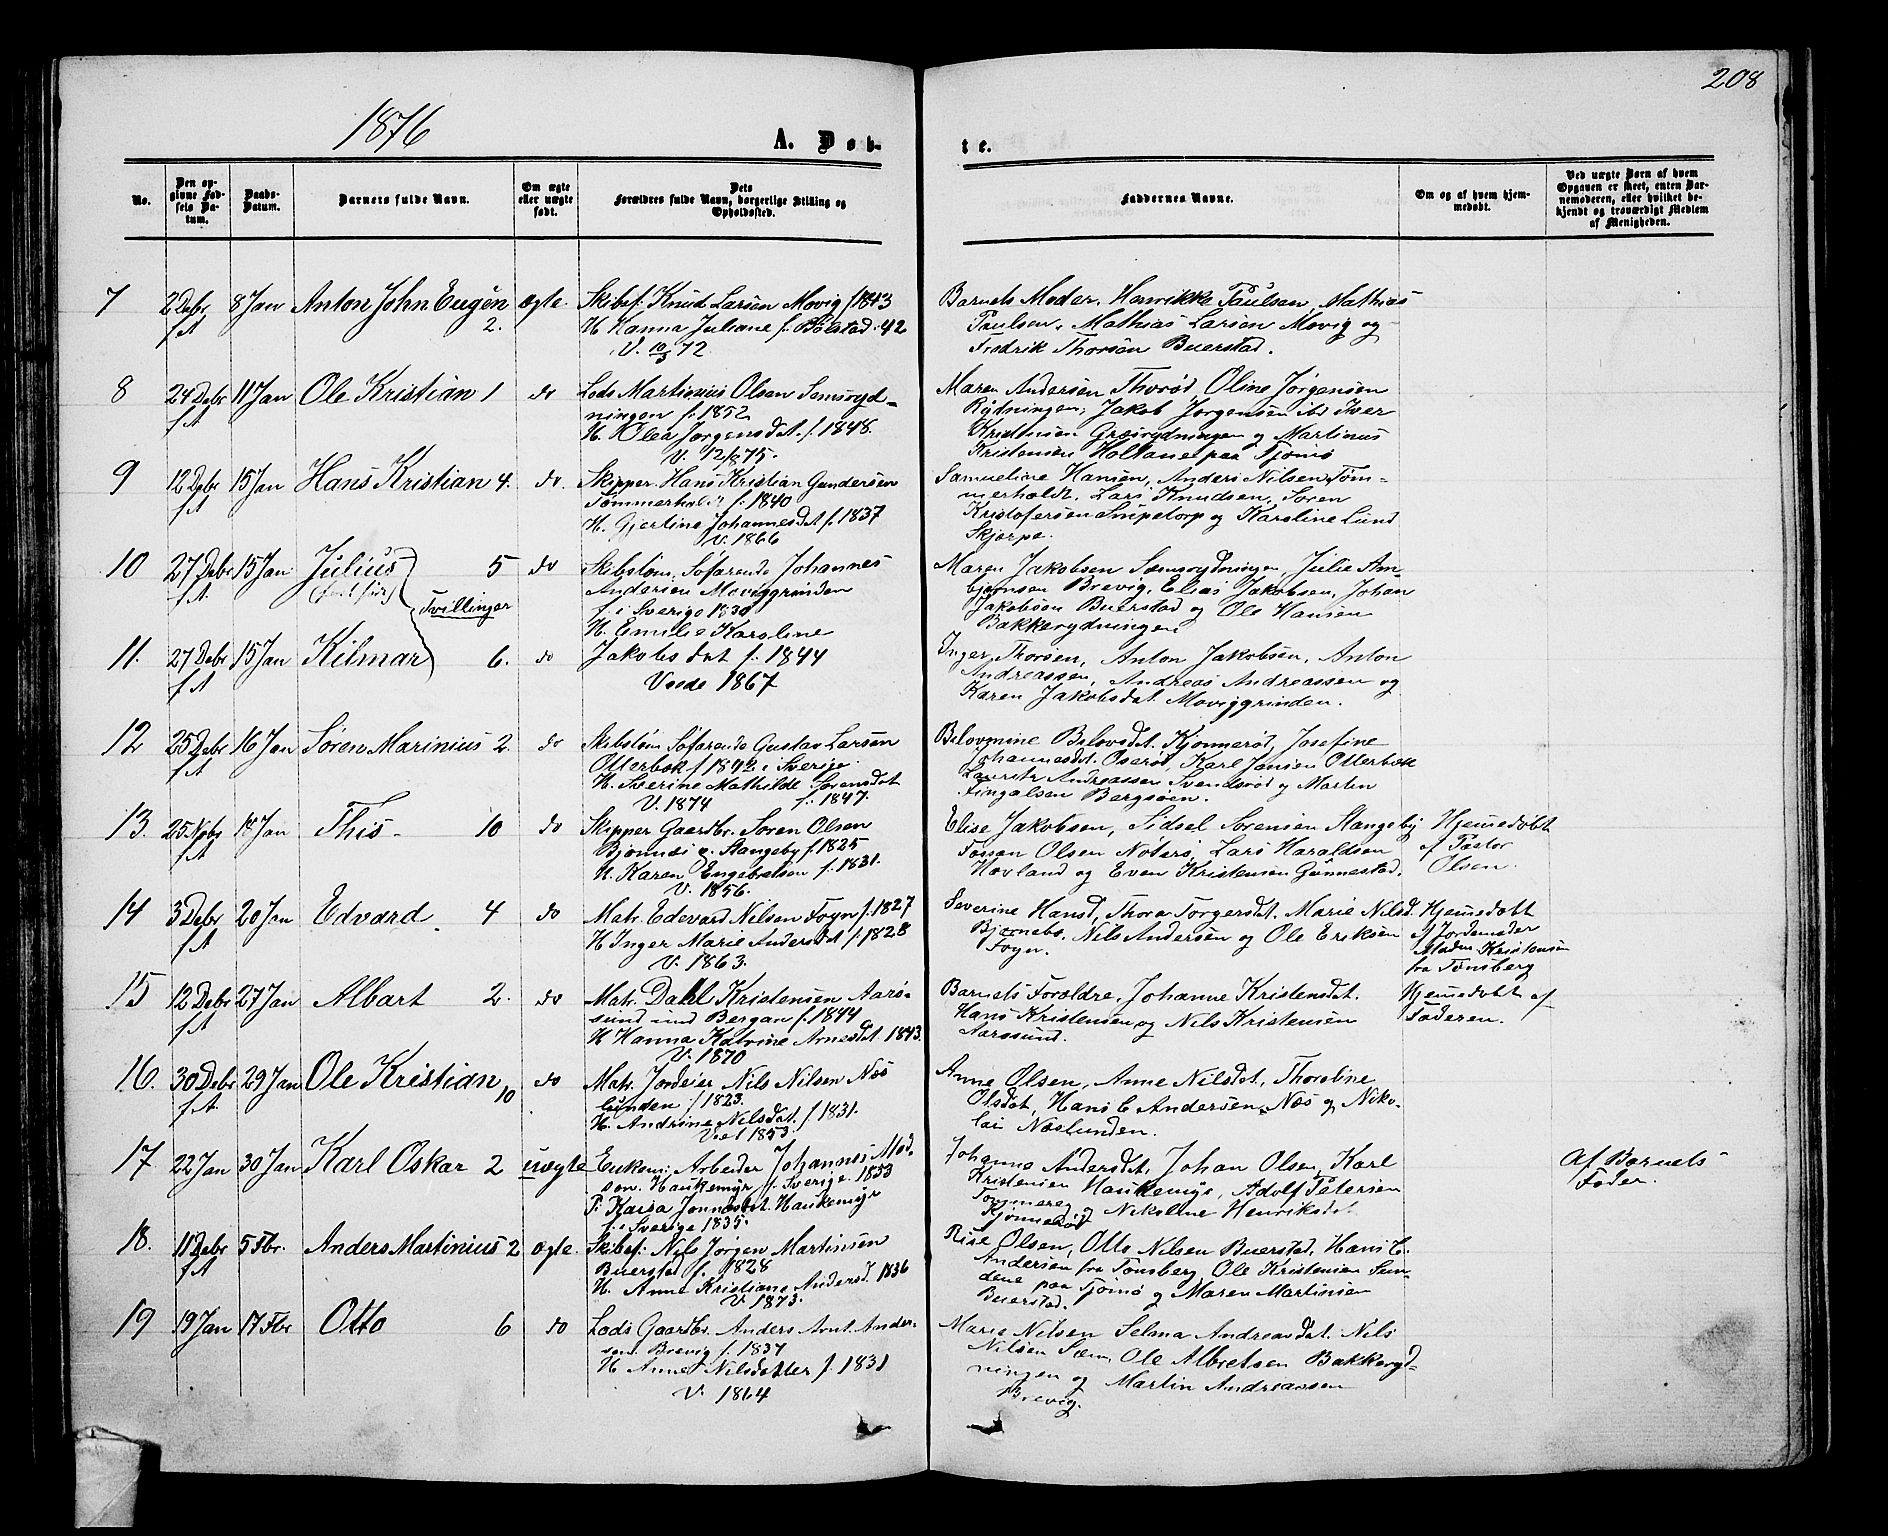 208
1876
A. Døb-
te.
No.
Den op-
givne Fød-
sels Da-
tum.
Daabs-
Datum.
Barnets fulde Navn.
Om ægte
eller uægte
født.
Dets
Forældres fulde Navn, borgerlige Stilling og
Opholdssted.
Faddernes Navne.
Om og af hvem hjem-
medøbt.
Ved uægte Børn af hvem
Opgaven er skeet, enten Bar-
nemoderen, eller hvilket be-
kjendt og troværdigt Medlem
af Menigheden.
7 2 Debr 8 Jan Anton John Eugén ægte.
f A 2.
Skibsf. Knud Larsen Movig f 1843
H. Hanna Juliane f. Bolstad 42
V. 10/3 72.
Barnets Moder. Henrikke Paulsen, Mathias
Paulsen, Mathias Larsen Movig og
Fredrik Thorsen Buerstad.
8 24 Debr 11 Jan Ole Kristian 1 do
f A
Lods Martinius Olsen Semsryd-
ningen f. 1852
H. Olea Jørgensdet. f. 1848.
V. 12/8 75.
Maren Andersen Thorød, Oline Jørgensen
Rydningen, Jakob Jørgensen ibd Iver
Kristensen Græsrydningen og Martinus
Kristensen Holtane paa Tjømø
9 12 Debr 15 Jan Hans Kristian 4. do.
f A
Skipper Hans Kristian Gundersen
Tømmerholt f. 1840
H. Gjertine Johannesdet f. 1837
V. 1866
Samueline Hansen, Anders Nilsen Tøm-
merholdt, Lars Knudsen, Søren
Kristofersen Snipetorp og Karoline Lund
Skjerpe.
10 27 Debr 15 Jan Julius 5 do
f A. (født først) Tvillinger
Skibstøm. Søfarende Johannes
Andersen Moviggrinden
f. i Sverige 1830
H. Emilie Karoline
Maren Jakobsen Sæmsrydningen, Julie Am-
bjørnsen Brevig, Elias Jakobsen, Johan
Jakobsen Buerstad og Ole Hansen
Bakkerydningen
11. 27 Debr 15 Jan Hilmar 6. do
f A
Jakobsdet f. 1844
Viede 1867
Inger Thorsen, Anton Jakobsen, Anton
Andreassen, Andreas Andreassen og
Karen Jakobsdet Moviggrinden.
12 25 Debr 16 Jan Søren Marinius 2. do
f A
Skibstøm Søfarende Gustav Larsen
Otterbæk f 1842 i Sverige.
H. Severine Mathilde Sørensdet
V. 1874 f. 1847.
Belovmine Belovsdet. Kjønnerøt, Josefine
Johannesdet. Oserød, Karl Jansen Otterbæk
Lauritz Andreassen Svendsrød og Martin
Fingalsen Bergsøen.
13. 25 Nobr 18 Jan This 10 do
f A
Skipper Gaardbr. Søren Olsen
Bjønnæs v. Stangeby f. 1825
H. Karen Engebretsen f. 1831.
V. 1856.
Elise Jakobsen, Sidsel Sørensen Stangeby
Tossen Olsen Nøterø, Lars Haraldsen
Hovland og Even Kristensen Gunnestad.
Hjemedøbt
af Pastor
Olsen.
14 3 Debr 20 Jan Edvard 4 do
f A
Matr. Edevard Nilsen Foyn f. 1827
H Inger Marie Andersdet f. 1828
V. 1863.
Severine Hansd, Thora Torgersdet. Marie Nilsd.
Bjørnebo. Nils Andersen og Ole Eriksen
Foyn.
Hjemedøbt
af Jordemoder
Madm. Kristensen
fra Tønsberg
15 12 Debr 27 Jan Albart 2. do
f A
Matr. Dahl Kristensen Aarø-
sund und Bergan f. 1844
H Hanna Katrine Arnesdet 1843.
V. 1870
Barnets Forældre, Johanne Kristensdet.
Hans Kristensen og Nils Kristensen
Aarøsund.
Hjemedøbt af
Faderen.
16. 30 Debr 29 Jan Ole Kristian 10 do
f A.
Matr. Jordeier Nils Nilsen Næs
lunden f 1823.
H. Andrine Nilsdet. f 1831.
Viet 1853.
Anne Olsen, Anne Nilsdet, Thoroline
Olsdet, Hans C Andersen Næs og Niko-
lai Næslunden.
17 22 Jan 30 Jan Karl Oskar 2 uægte
Enkem: Arbeider Johannes Mod-
sen. Haukemyr f. Sverige 1853
P. Kaisa Jonnasdet. Haukemyr
f. i Sverige 1835.
Johanne Andersdet, Johan Olsen, Karl
Kristensen Haukemyr, Adolf Petersen
Tommerej og Nikoline Henriksdet
Kjønnerød
Af Barnets
Fader.
18. 11 Debr 5 Fbr. Anders Martinius 2 ægte.
f A
Skibsf. Nils Jørgen Martinsen
Buerstad f. 1828
H. Anne Kristiane Andersd. 1836
V. 1873.
Rise Olsen, Otto Nilsen Buerstad, Hans C.
Andersen fra Tønsberg Ole Kristensen Sun-
dene paa Tjømø og Maren Martinsen
Buerstad.
19 19 Jan 17 Fbr Otto 6 do
Lods Gaardbr. Anders Arnt. Ander-
sen. Brevig f. 1837
H Anne Nilsdatter f. 1831
V. 1864
Marie Nilsen Selma Andreasdet. Nils
Nilsen Sæm, Ole Albretsen Bakkeryd-
ningen og Martin Andreassen
Brevig.